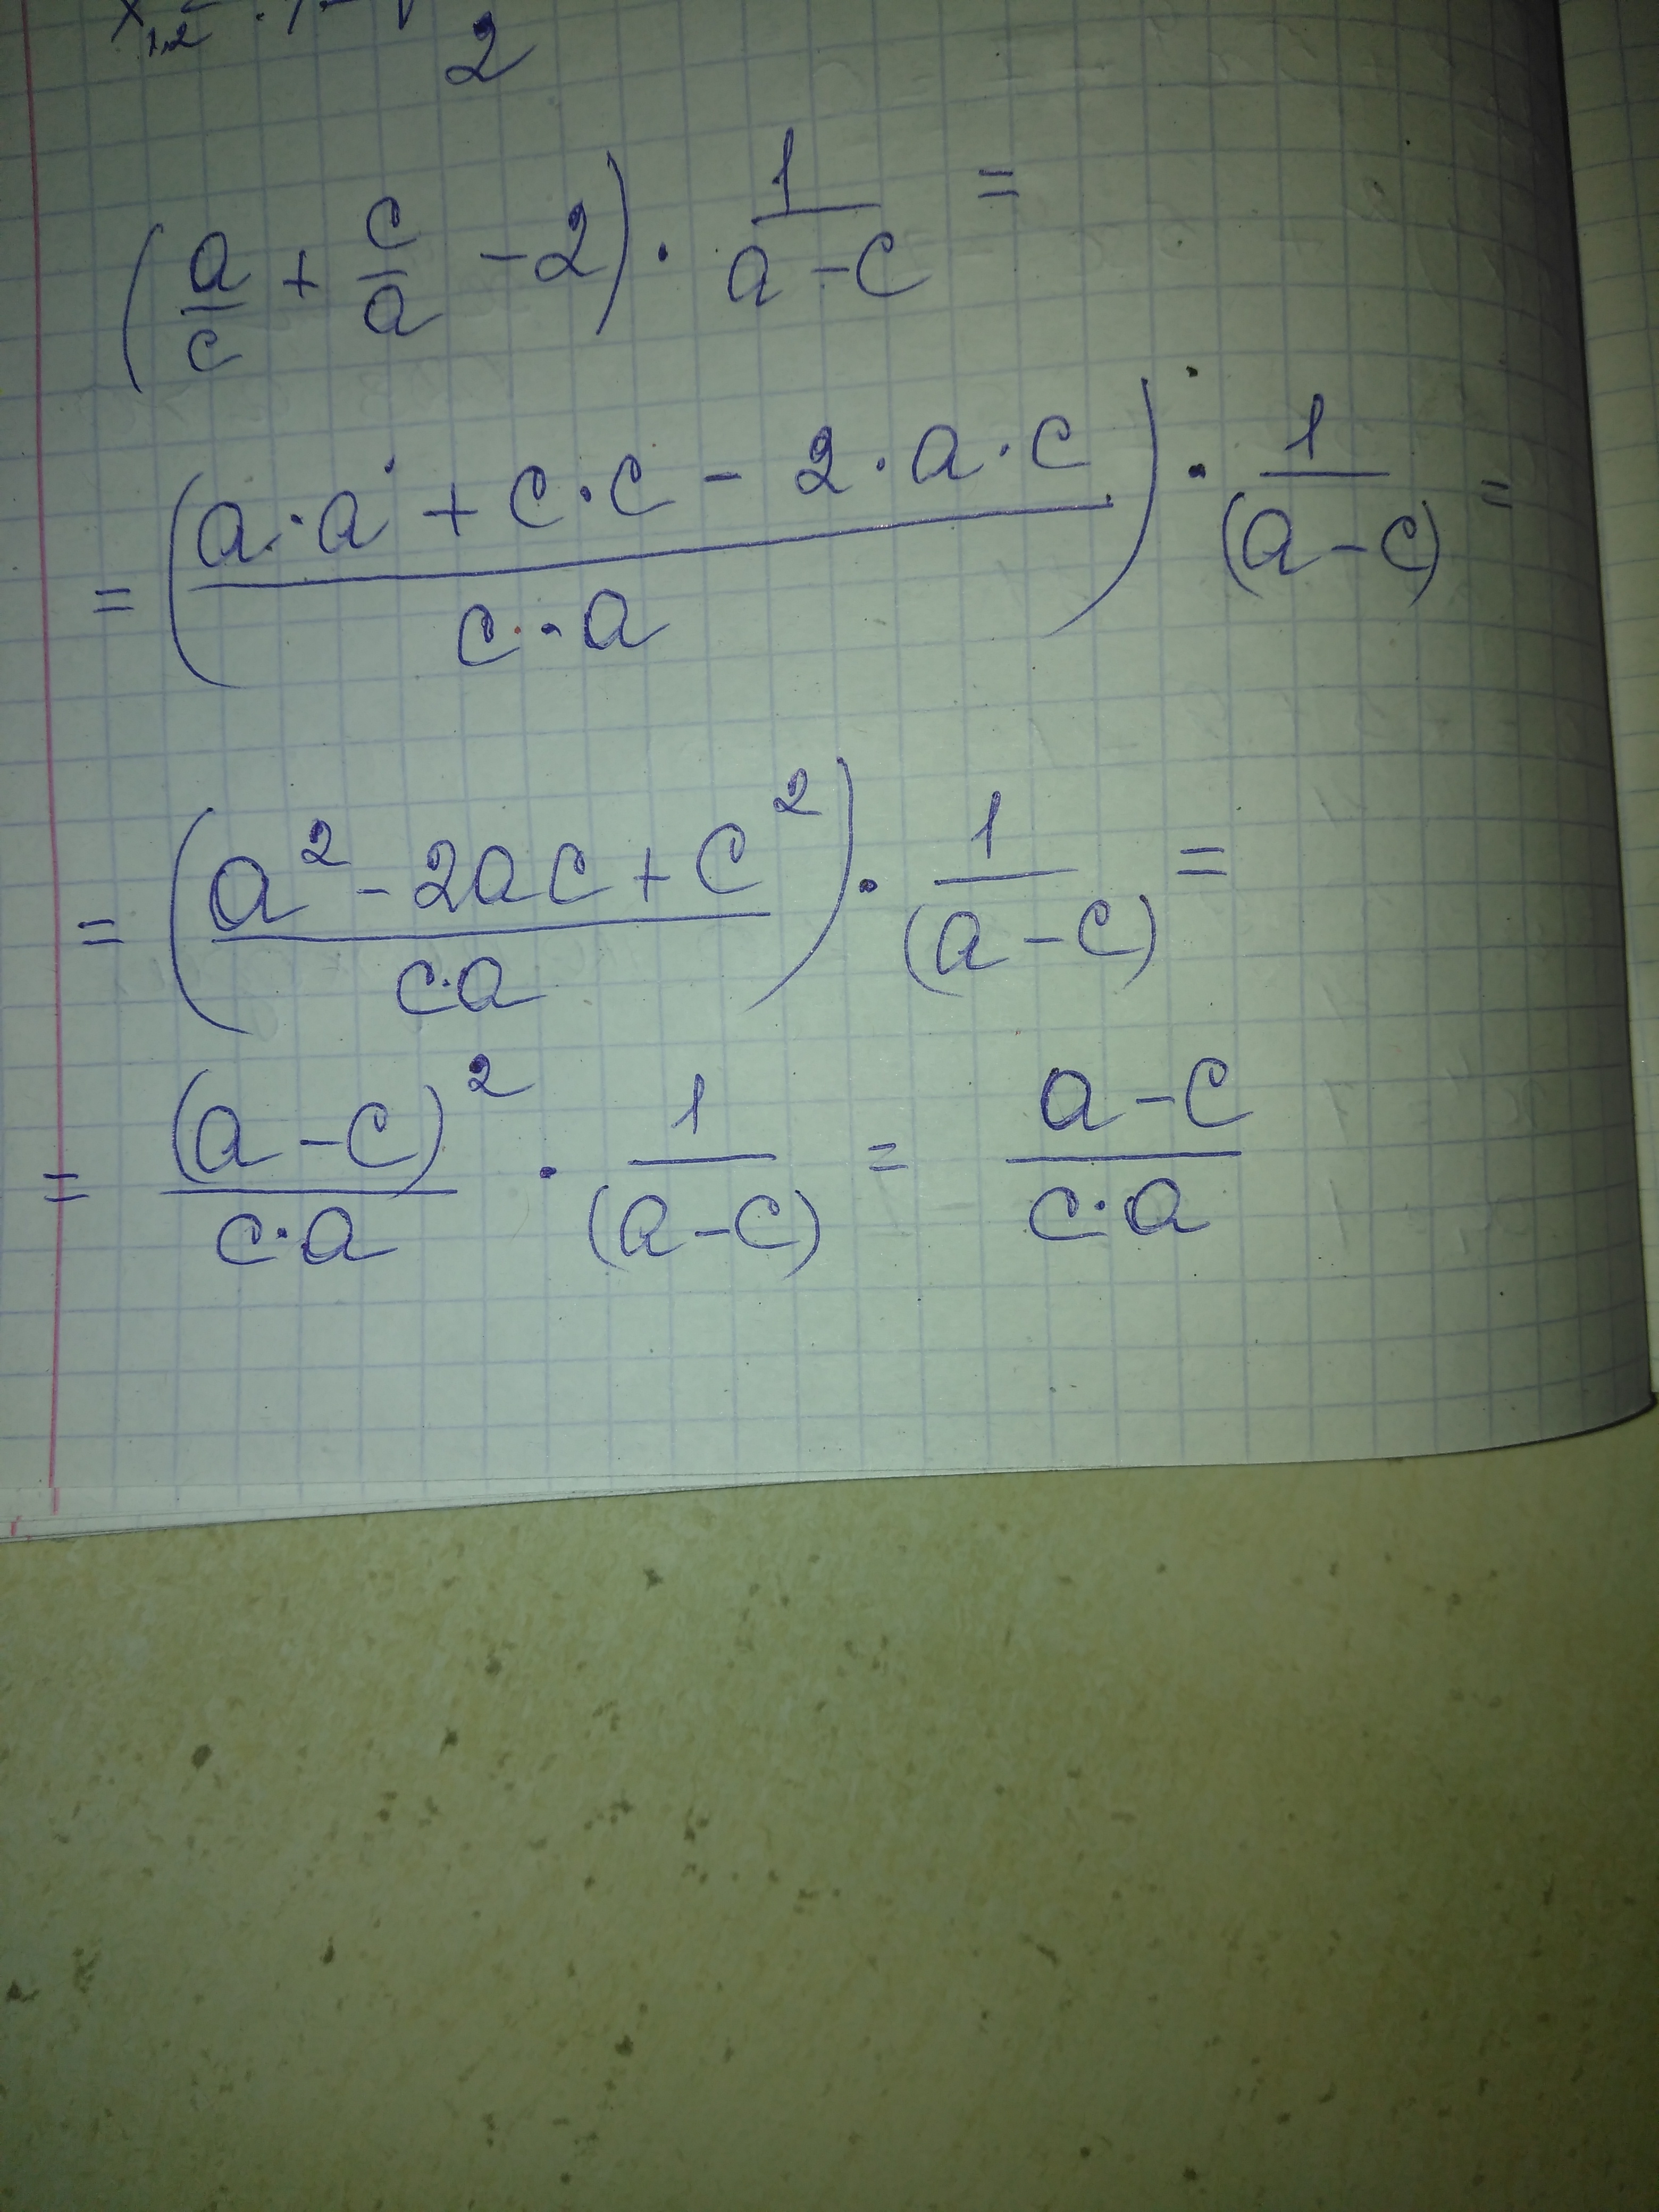 2
(a/c + c/a - 2) · 1/(a - c) =
= ((a · a + c · c - 2 · a · c)/(c · a)) · 1/((a - c)) =
= ((a² - 2ac + c²)/(c·a)) · 1/((a - c)) =
= (a - c)²/(c·a) · 1/((a - c)) = (a - c)/(c·a)